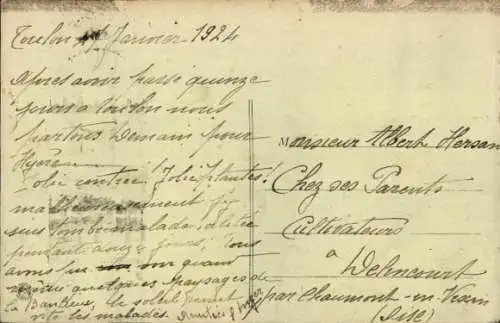 Toulon Janvier 1924
Après avoir passé quinze
jours à Toulon nous
partons demain pour
Hyères
Jolie contrée! Jolie plantes!
malheureusement j'y
suis tombé malade, alité
pendant jours, nous
avons vu quand
même quelques paysages de
la banlieue, le soleil guérit
vite les malades.
Monsieur Albert Hersan
Chez ses Parents
Cultivateurs
à Delincourt
par Chaumont-en-Vexin
(Oise)